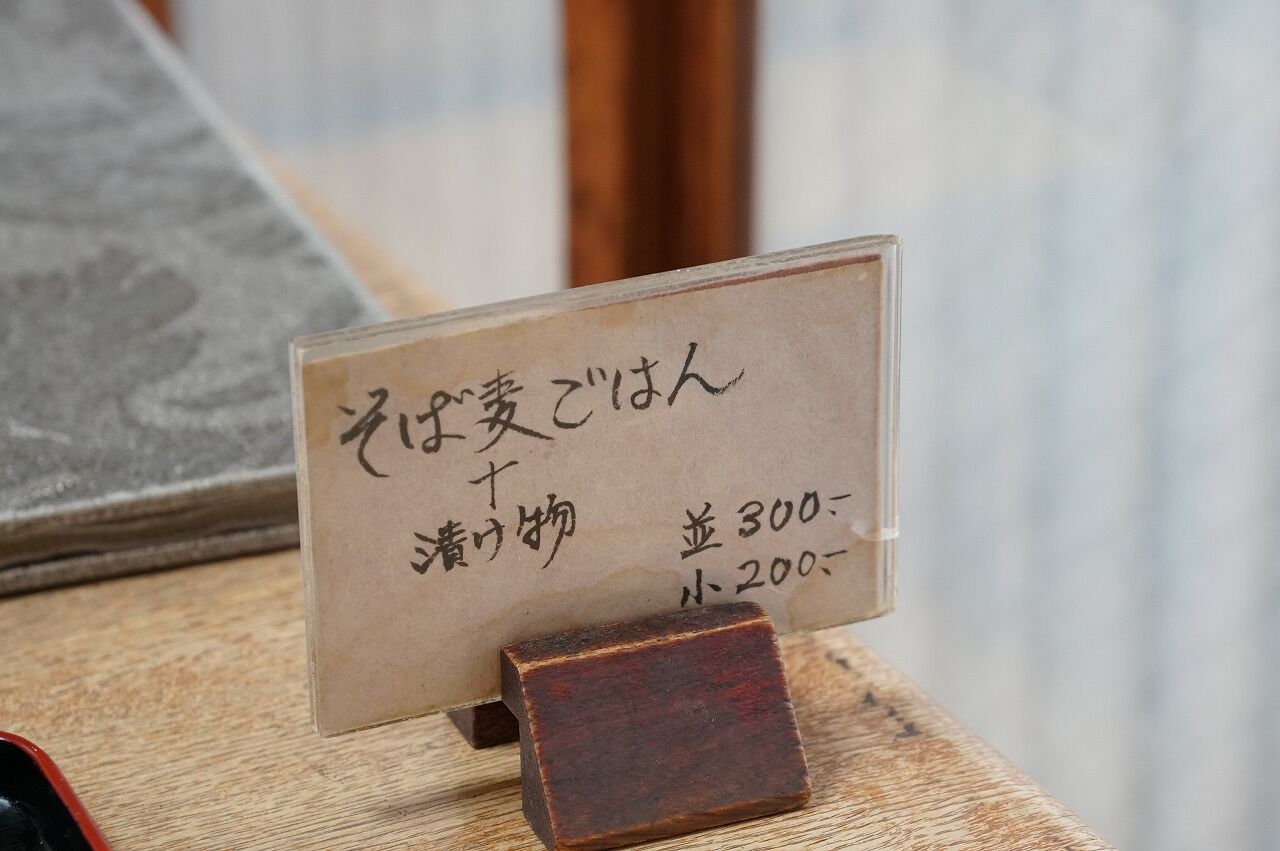 そば麦ごはん
+
漬け物
並 300.-
小 200.-